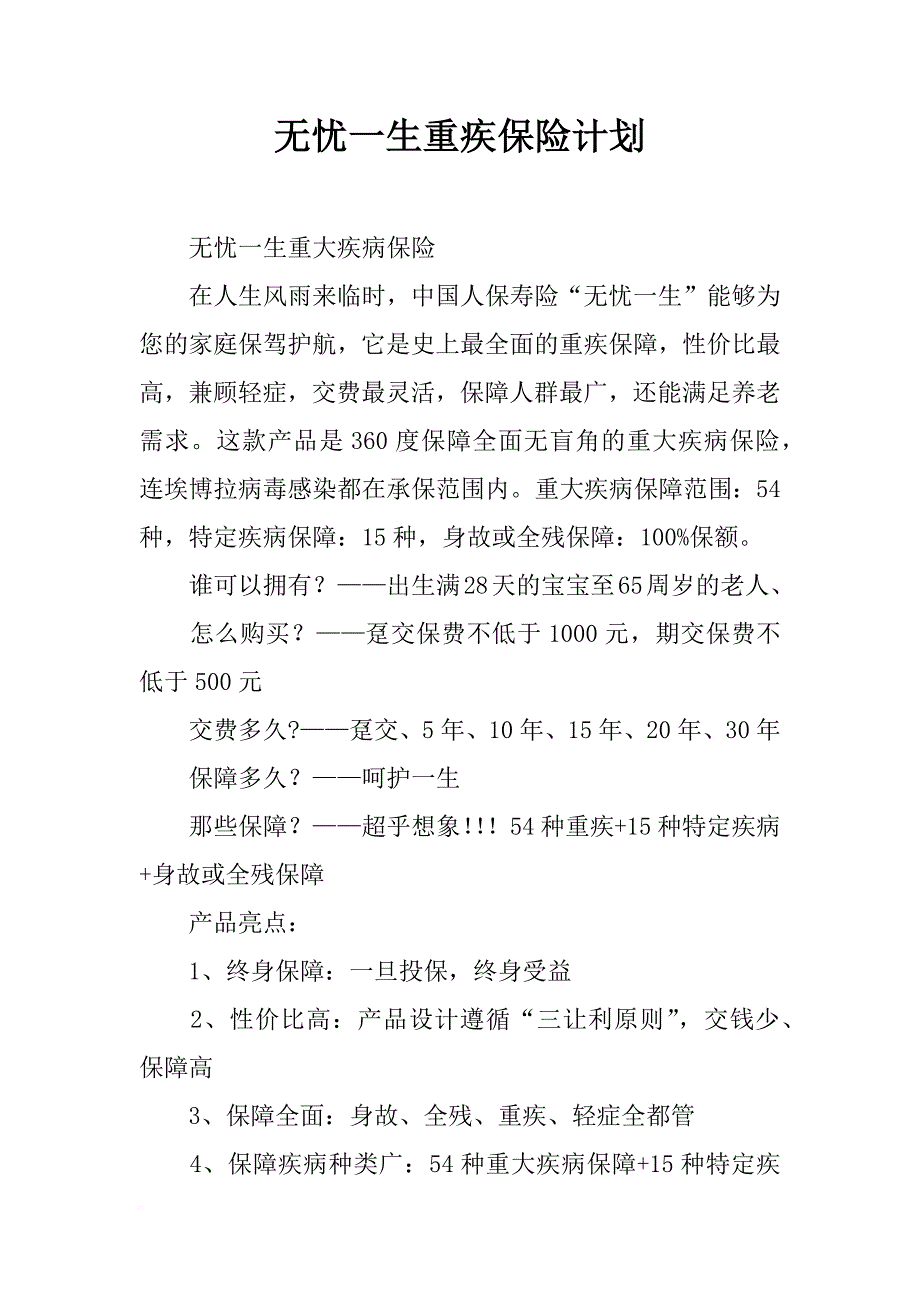 无忧一生重疾保险计划
无忧一生重大疾病保险
在人生风雨来临时，中国人保寿险“无忧一生”能够为
您的家庭保驾护航，它是史上最全面的重疾保障，性价比最
高，兼顾轻症，交费最灵活，保障人群最广，还能满足养老
需求。这款产品是 360 度保障全面无盲角的重大疾病保险，
连埃博拉病毒感染都在承保范围内。重大疾病保障范围：54
种，特定疾病保障：15 种，身故或全残保障：100%保额。
谁可以拥有？——出生满 28 天的宝宝至 65 周岁的老人、
怎么购买？——趸交保费不低于 1000 元，期交保费不
低于 500 元
交费多久?——趸交、5 年、10 年、15 年、20 年、30 年
保障多久？——呵护一生
那些保障？——超乎想象!!! 54 种重疾+15 种特定疾病
+身故或全残保障
产品亮点：
1、终身保障：一旦投保，终身受益
2、性价比高：产品设计遵循“三让利原则”，交钱少、
保障高
3、保障全面：身故、全残、重疾、轻症全都管
4、保障疾病种类广：54 种重大疾病保障+15 种特定疾